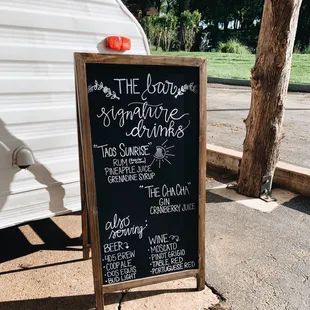 THE bar
signature
drinks
"TAOS SUNRISE"
RUM
PINEAPPLE JUICE
GRENADINE SYRUP
"THE CHACHA"
GIN
CRANBERRY JUICE
also
serving
BEER
WINE
405 BREW
COOP ALE
DOS EQUIS
BUD LIGHT
MOSCATO
PINOT GRIGIO
TABLE RED
PORTUGESE RED